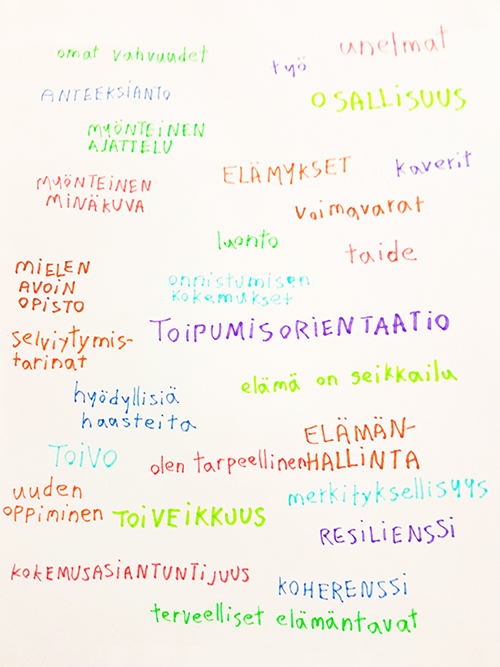 omat vahvuudet
työ
unelmat
ANTEEKSIANTO
OSALLISUUS
MYÖNTEINEN
AJATTELU
ELÄMYKSET
kaverit
MYÖNTEINEN
MINÄKUVA
voimavarat
luonto
taide
MIELEN
AVOIN
OPISTO
onnistumisen
kokemukset
TOIPUMISORIENTAATIO
selviytymis-
tarinat
elämä on seikkailu
hyödyllisiä
haasteita
ELÄMÄN-
HALLINTA
TOIVO
olen tarpeellinen
merkityksellisyys
uuden
oppiminen
TOIVEIKKUUS
RESILIENSSI
KOKEMUSASIANTUNTIJUUS
KOHERENSSI
terveelliset elämäntavat